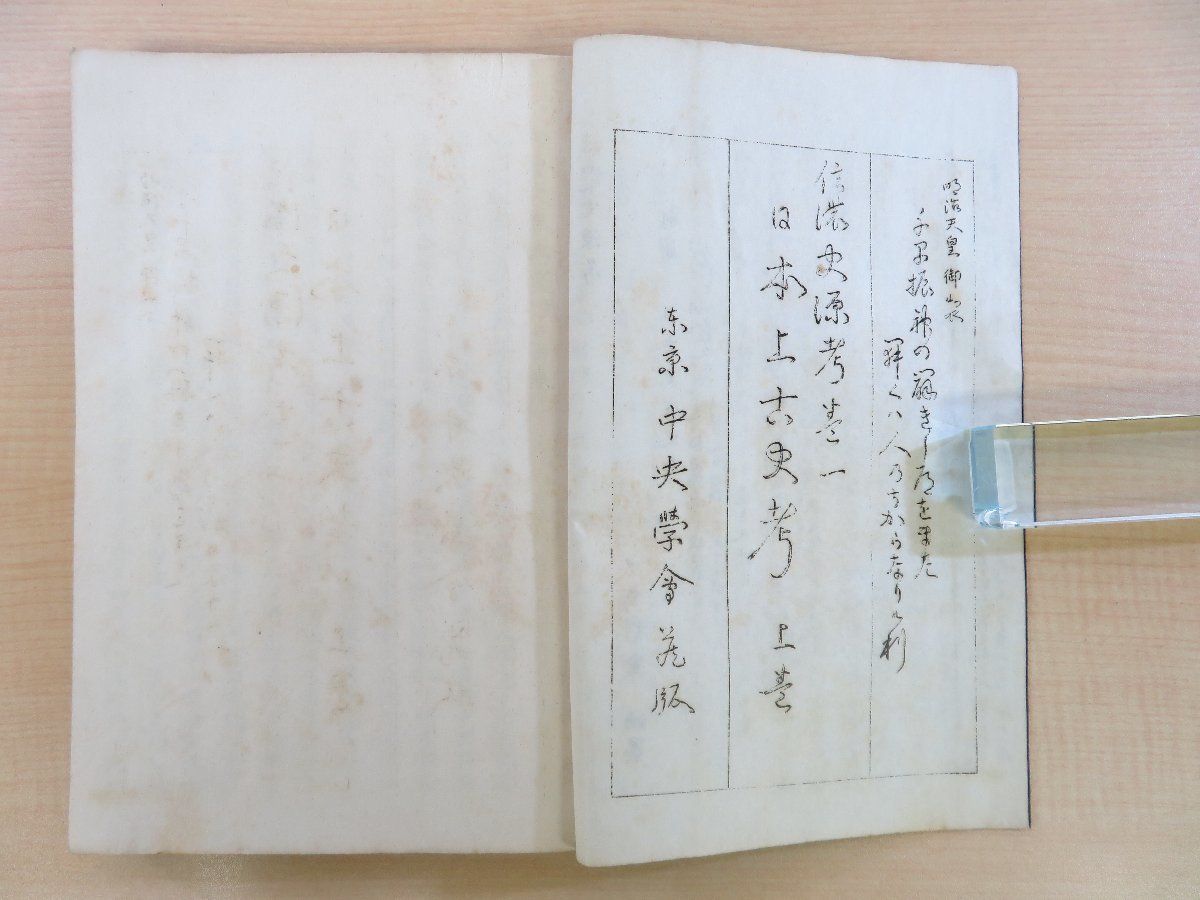 明治天皇御製
千早振神の闢きし道をまた
開くハ人のちからなりけ利
信濃史源考卷一
日本上古史考 上卷
东京 中央學會蔵版